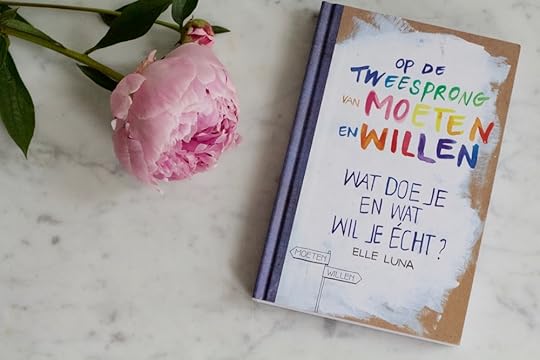 OP DE
TWEESPRONG
VAN MOETEN
EN WILLEN
WAT DOE JE
EN WAT
WIL JE ÉCHT?
ELLE LUNA
MOETEN
WILLEN